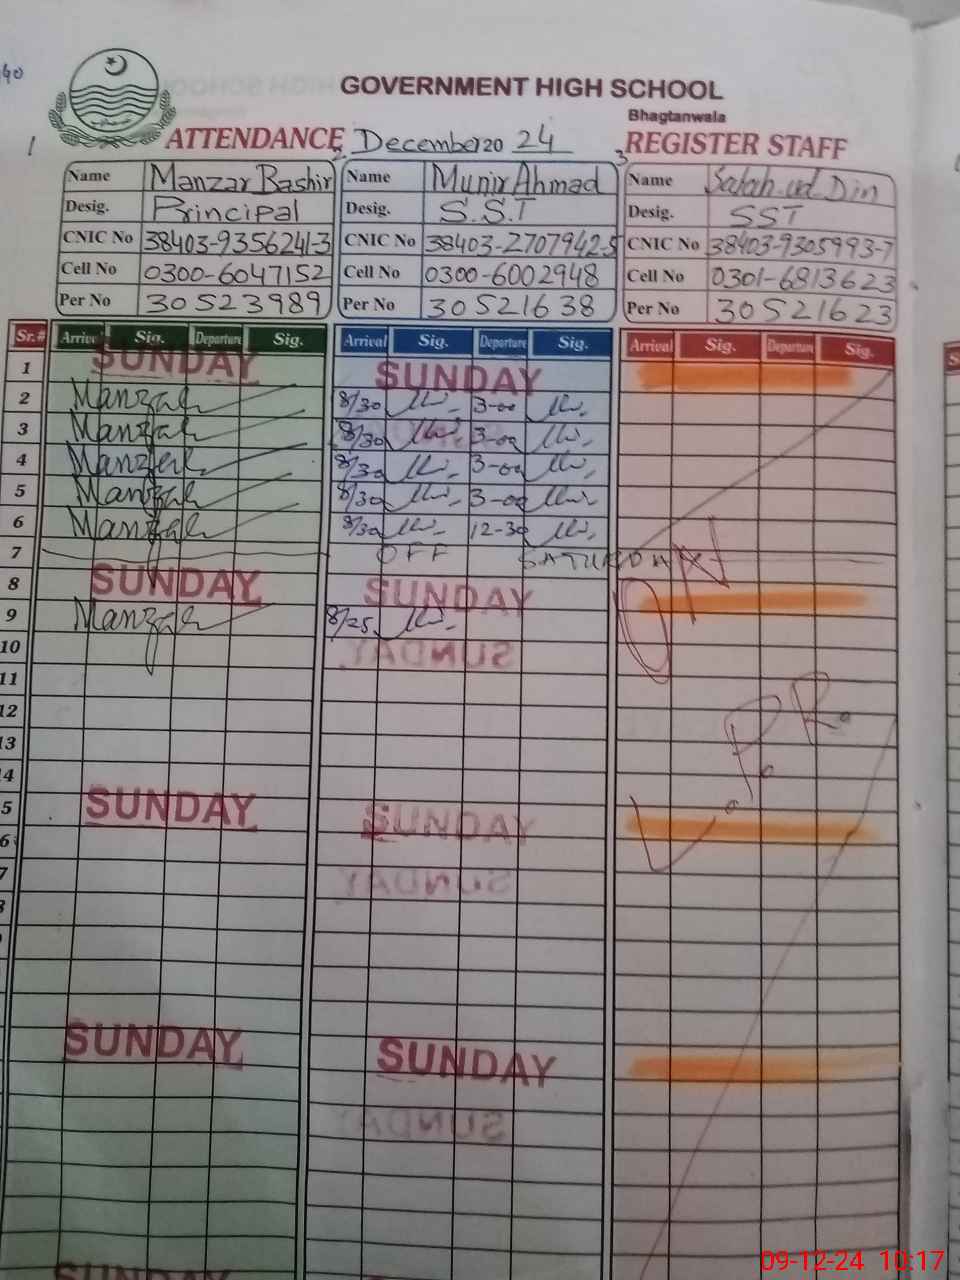 GOVERNMENT HIGH SCHOOL
Bhagtanwala
1 ATTENDANCE 2 December 20 24 3 REGISTER STAFF
Name Manzar Bashir Name Munir Ahmad Name Salah-ud-Din
Desig. Principal Desig. S.S.T Desig. SST
CNIC No 38403-9356241-3 CNIC No 38403-2707942-5 CNIC No 38403-9305993-7
Cell No 0300-6047152 Cell No 0300-6002948 Cell No 0301-6813623
Per No 30523989 Per No 30521638 Per No 30521623
Sr.# Arrival Sig. Departure Sig. Arrival Sig. Departure Sig. Arrival Sig. Departure Sig.
1 SUNDAY SUNDAY
2 Manzar 8/30 3-00
3 Manzar 8/30 3-00
4 Manzar 8/30 3-00
5 Manzar 8/30 3-00
6 Manzar 8/30 12-30
7 OFF SATURDAY
8 SUNDAY SUNDAY
9 Manzar 8/25
ON
10 SUNDAY
11
12
L.P.R.
13
14
15 SUNDAY SUNDAY
16
17 SUNDAY
SUNDAY SUNDAY
SUNDAY
SUNDAY
09-12-24 10:17